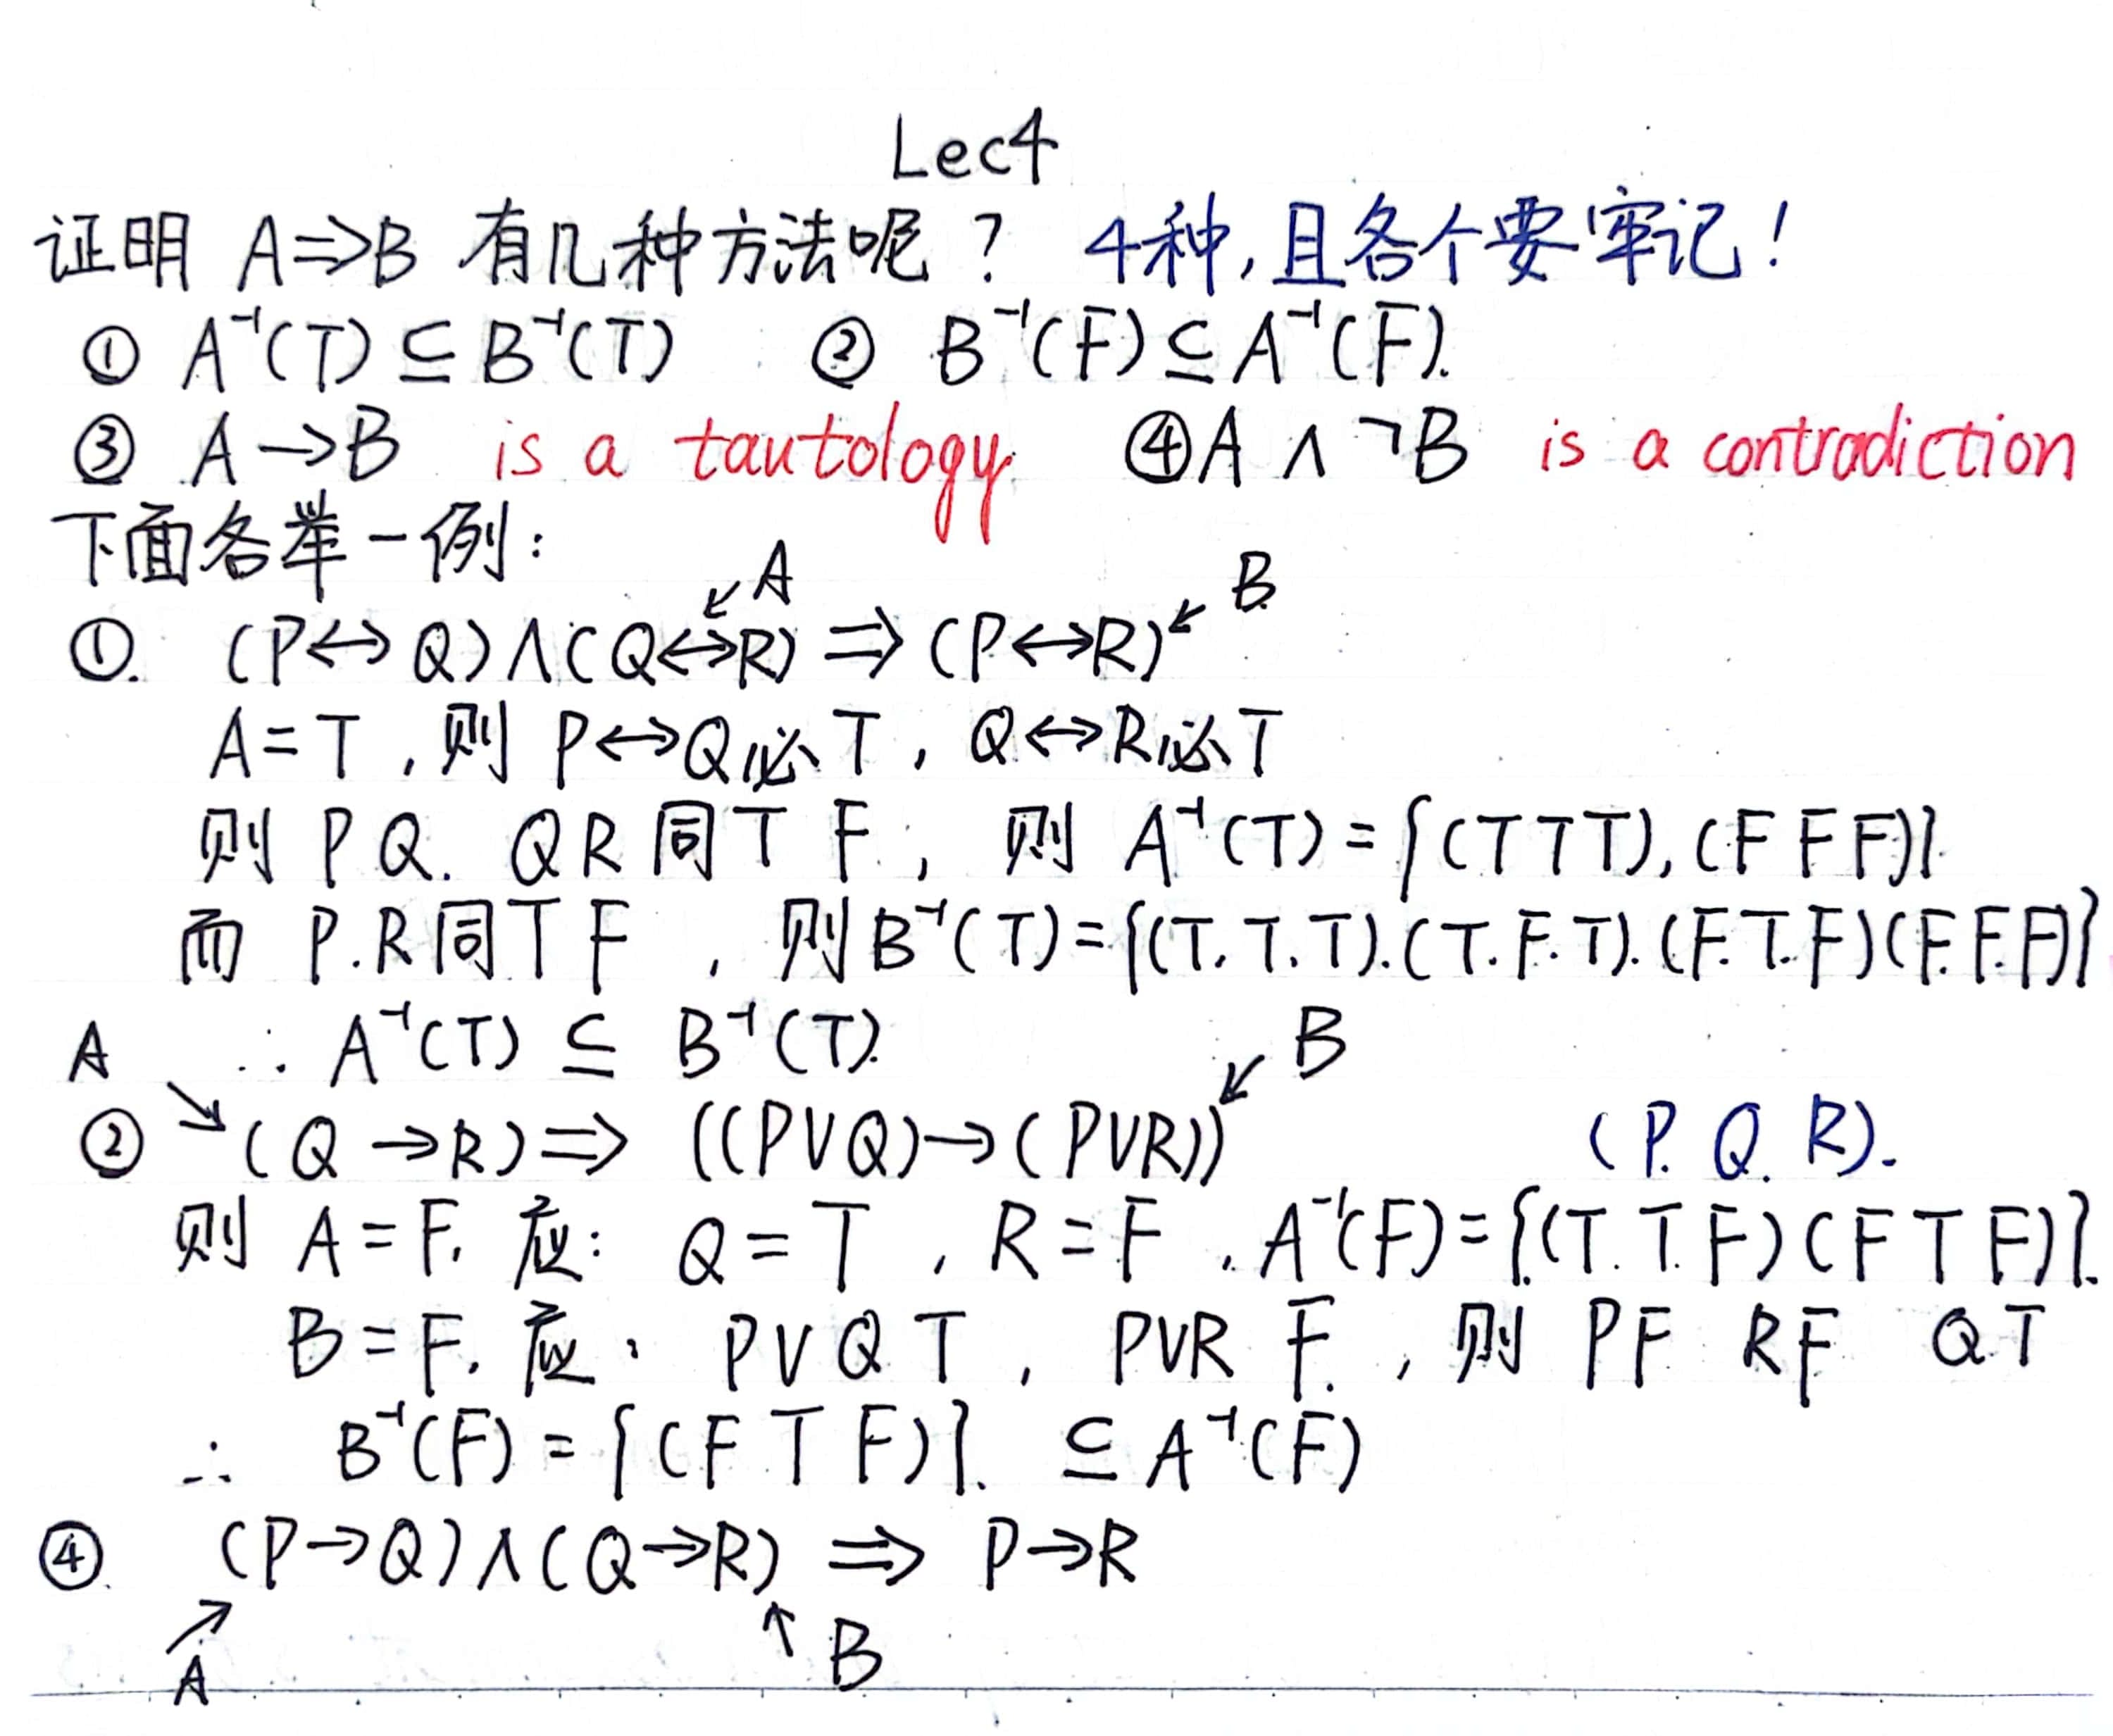 Lec4
证明 A⇒B 有几种方法呢？ 4种,且各个要牢记！
① A⁻¹(T) ⊆ B⁻¹(T) ② B⁻¹(F) ⊆ A⁻¹(F).
③ A→B is a tautology. ④ A ∧ ¬B is a contradiction
下面各举一例：
↙A ↙B
①. (P↔Q)∧(Q↔R) ⇒ (P↔R)
A=T , 则 P↔Q必T , Q↔R必T
则 P Q. Q R 同 T F , 则 A⁻¹(T) = {(T T T), (F F F)}.
而 P.R同 T F , 则 B⁻¹(T) = {(T. T. T).(T. F. T). (F. T. F)(F. F. F)}
A ∴ A⁻¹(T) ⊆ B⁻¹(T). ↙B
② ↘(Q→R) ⇒ ((P∨Q)→(P∨R)) (P. Q. R).
则 A=F. 应: Q=T , R=F , A⁻¹(F) = {(T. T. F)(F T F)}.
B=F. 应: P∨Q T , P∨R F. , 则 PF RF QT
∴ B⁻¹(F) = {(F T F)}. ⊆ A⁻¹(F)
④. (P→Q)∧(Q→R) ⇒ P→R
↗A ↑B